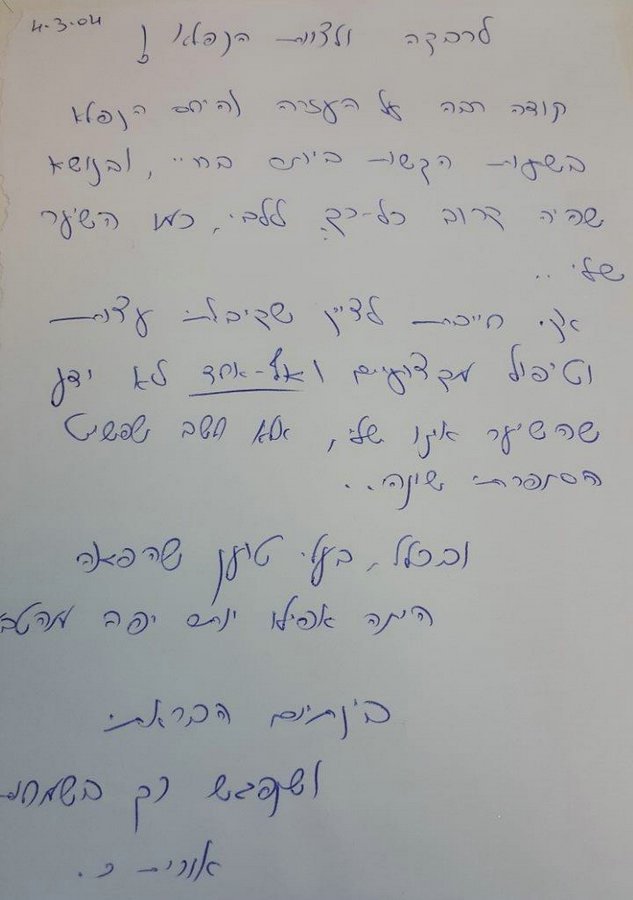 4.3.04
לרבקה ולצוות הנפלא!
תודה רבה על העזרה והיחס הנפלא
בשעות הקשות ביותר בחיי, ובנושא
שהיה קרוב כל-כך ללבי, כמו השיער
שלי..
אני חייבת לציין שקיבלתי עצות
וטיפול מקצועיים ואף-אחד לא ידע
שהשיער אינו שלי, אלא חשב שפשוט
הסתפרתי שונה...
ובכלל, בעלי טוען שהפאה
היתה אפילו יותר יפה מהטב
בינתיים הבראתי
ושנפגש רק בשמחות
אורית כ.